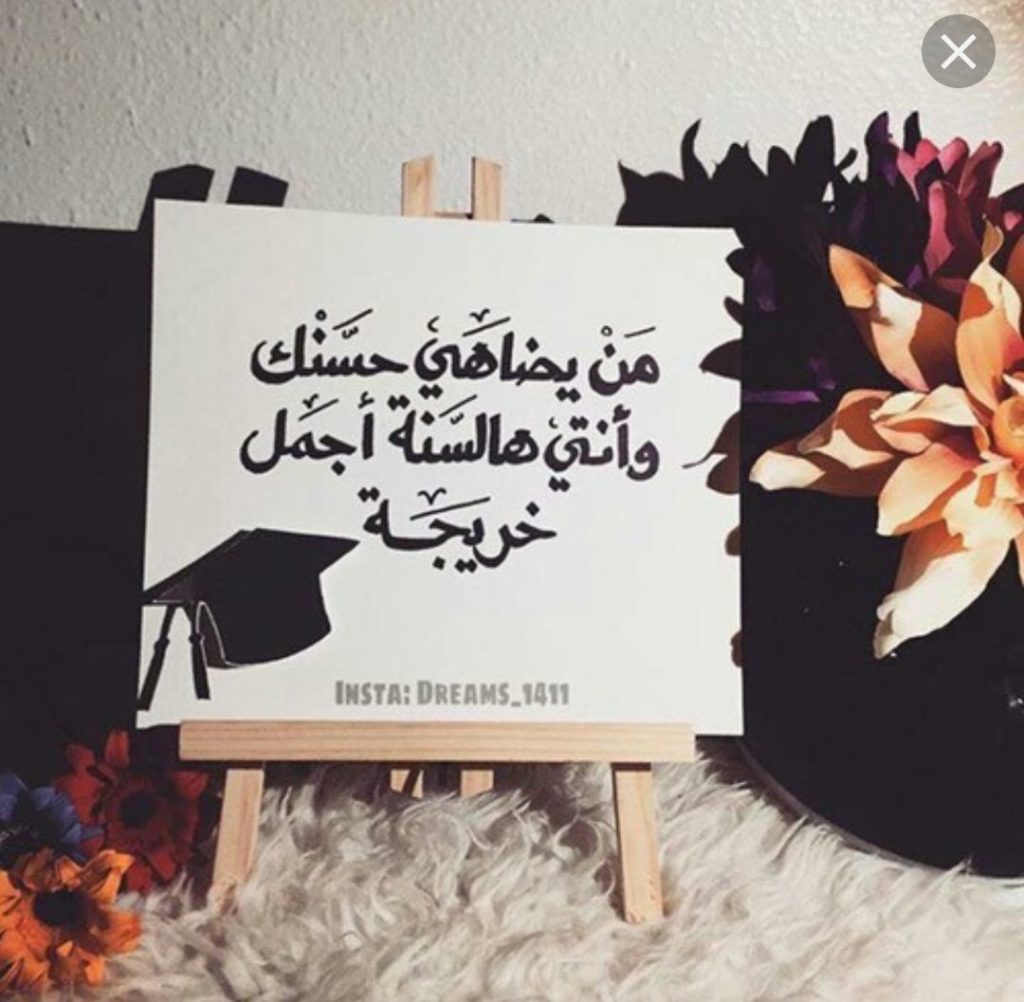 مَنْ يضاهَي حسَّنْك
وأنتي هالسَنة أجمَل
خريجَـة
Insta: Dreams_1411